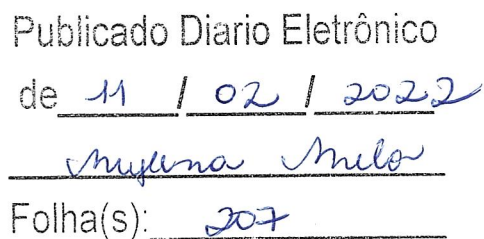 Publicado Diario Eletrônico
de 11 / 02 / 2022
Melo
Folha(s): 207